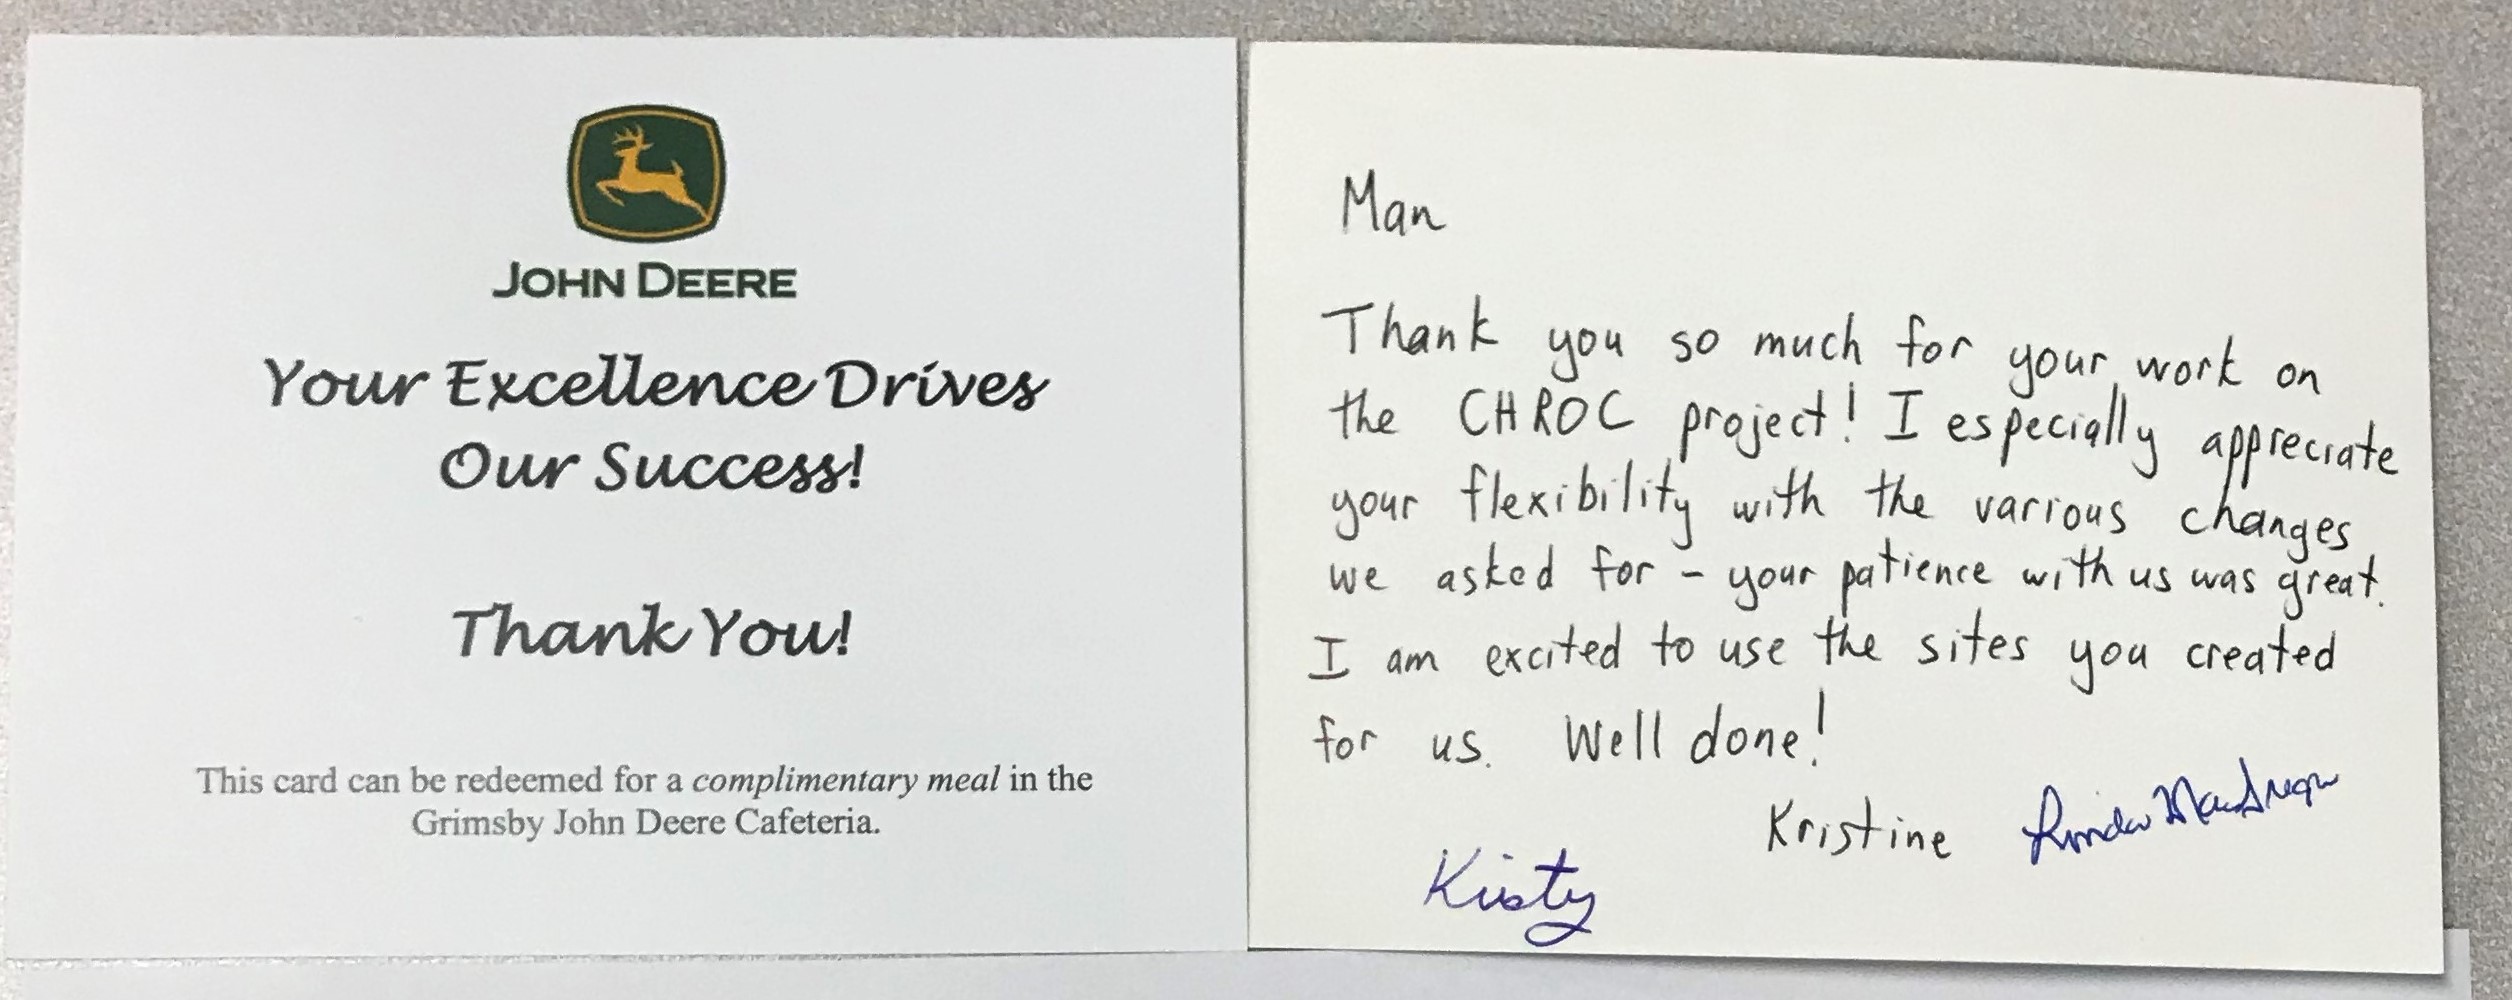 JOHN DEERE
Your Excellence Drives
Our Success!
Thank You!
This card can be redeemed for a complimentary meal in the
Grimsby John Deere Cafeteria.
Man
Thank you so much for your work on
the CHROC project! I especially appreciate
your flexibility with the various changes
we asked for - your patience with us was great.
I am excited to use the sites you created
for us. Well done!
Kristine
Kirsty